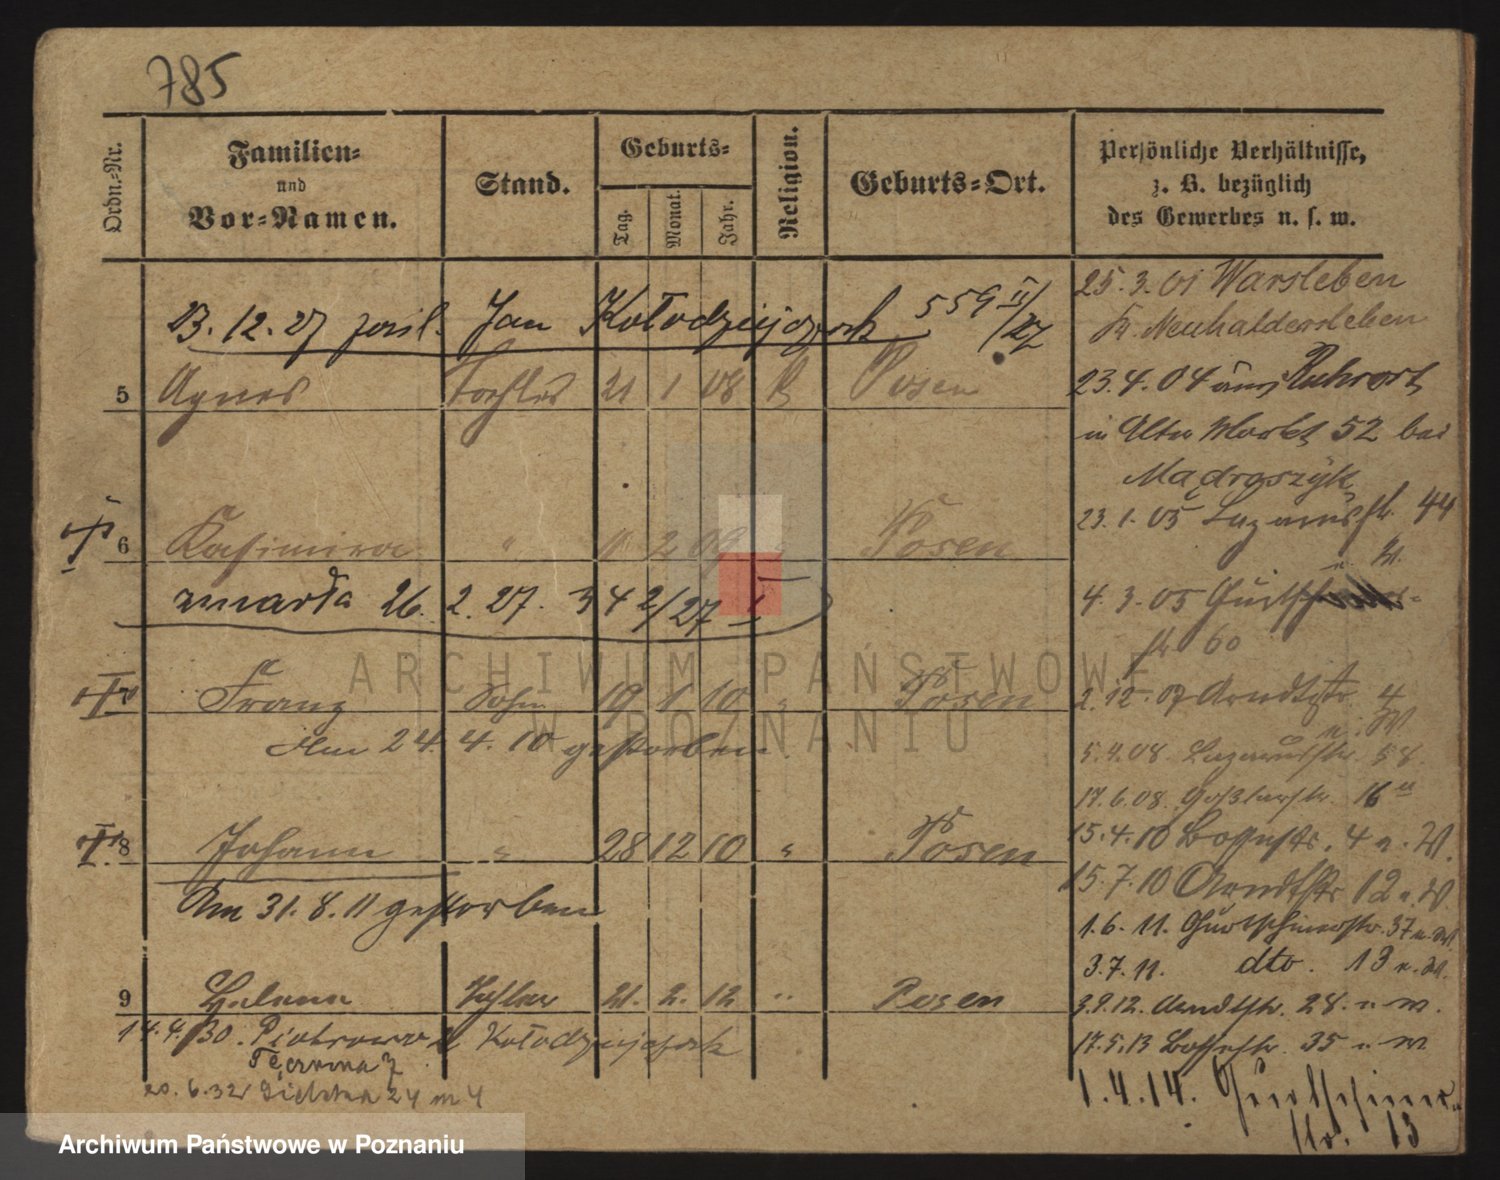 785
Ordn.-Nr.
Familien-
und
Vor-Namen.
Stand.
Geburts-
Tag.
Monat.
Jahr.
Religion.
Geburts-Ort.
Persönliche Verhältnisse,
z. B. bezüglich
des Gewerbes u. s. w.
23.12.27 Jan Kołodziejczak 559 II/27
5 Agnes Tochter 21 1 08 Posen
6 Kasimira " 11 2 09 Posen
zmarła 26. 2. 27. 342/27 I
7 Franz Sohn 19 1 10 " Posen
Am 24. 4. 10 gestorben.
8 Johann " 28 12 10 " Posen
Am 31. 8. 11 gestorben
9 Helena Tochter 21. 2. 12 " Posen
14.4.30. Kołodziejczak
20.6.32
25.3.01 Warsleben
Kr. Neuhaldersleben
23.4.04 aus Ruhrort
in Alter Markt 52 bei
Mądraszyk
23.1.05 Lazarusstr. 44
u. W.
4.3.05
str 60
2.12.07 Arndtstr. 4
u. W
5.4.08. Lazarusstr. 58.
17.6.08. Goßlerstr. 16 u
15.4.10 4 u. W.
15.7.10 Arndtstr 12 u. W.
1.6.11. Gurtschinerstr. 37 u. W
3.7.11. dto. 13 u. W.
3.9.12. Arndtstr. 28. u W.
17.5.13 35 u W
1.4.14. Gurtschiner-
str. 13
ARCHIWUM PAŃSTWOWE
W POZNANIU
Archiwum Państwowe w Poznaniu